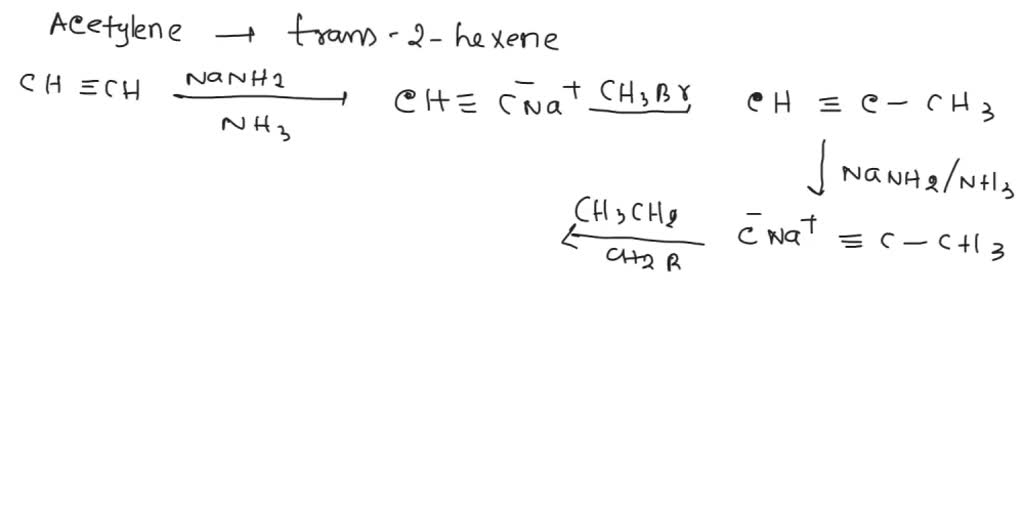 Acetylene → trans-2-hexene
CH ≡CH NaNH2 NH3 CH≡ C̄Na⁺ CH3Br CH ≡ C - CH3
NaNH2/NH3
CH3CH2 CH2 R C̄Na⁺ ≡ C - CH3